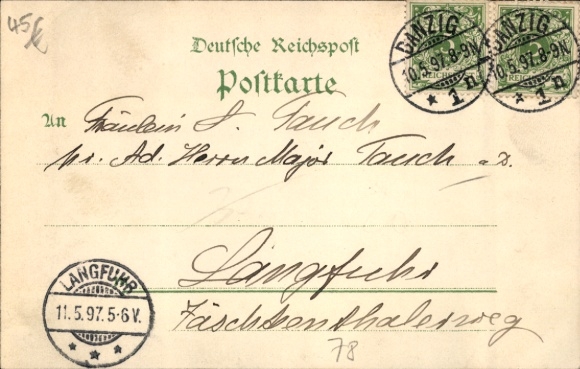 45
Deutsche Reichspost
Postkarte
DANZIG
10.5.97.8-9N
* 1 n
DANZIG
10.5.97.8-9N
* 1 n
An Fräulein L. Tauch
pr. Ad. Herrn Major Tauch a.D.
Langfuhr
Jäschkenthalerweg
78
LANGFUHR
11.5.97.5-6V.
* * *